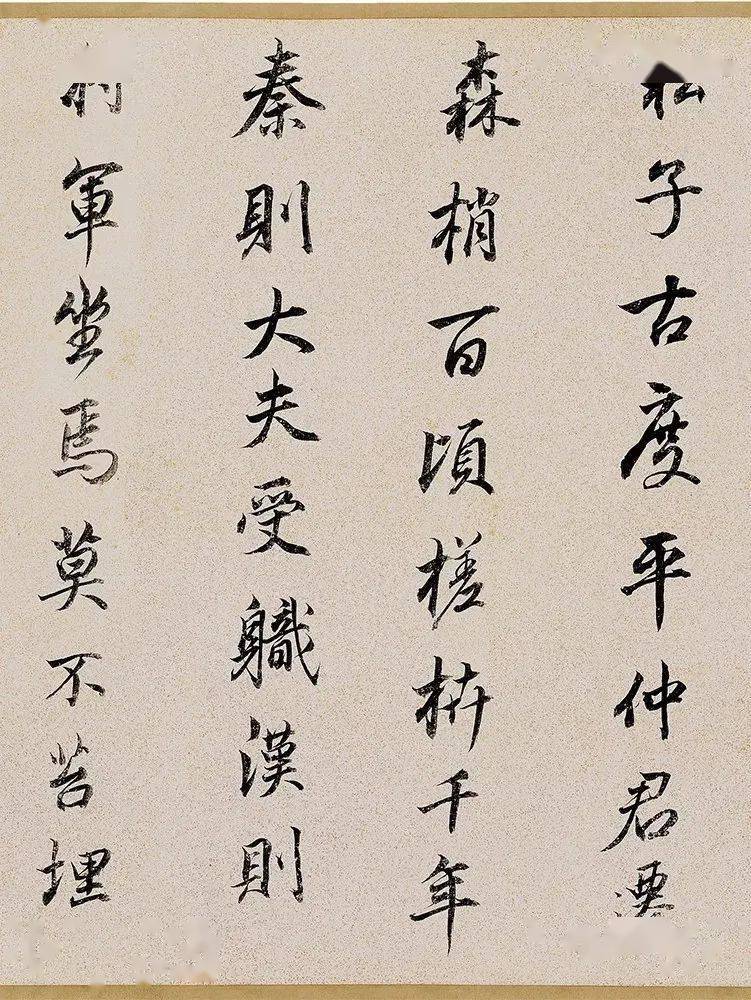 松子古度平仲君
森梢百頃槎枿千年
秦則大夫受軄漢則
軍坐焉莫不苔埋